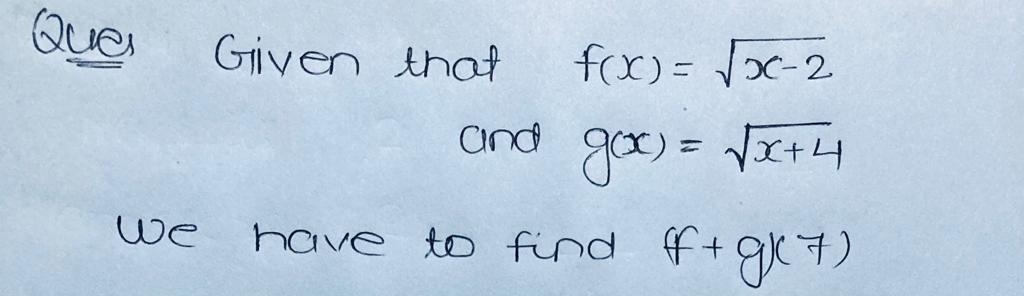 Ques Given that f(x) = √x-2
and g(x) = √x+4
we have to find (f+g)(7)